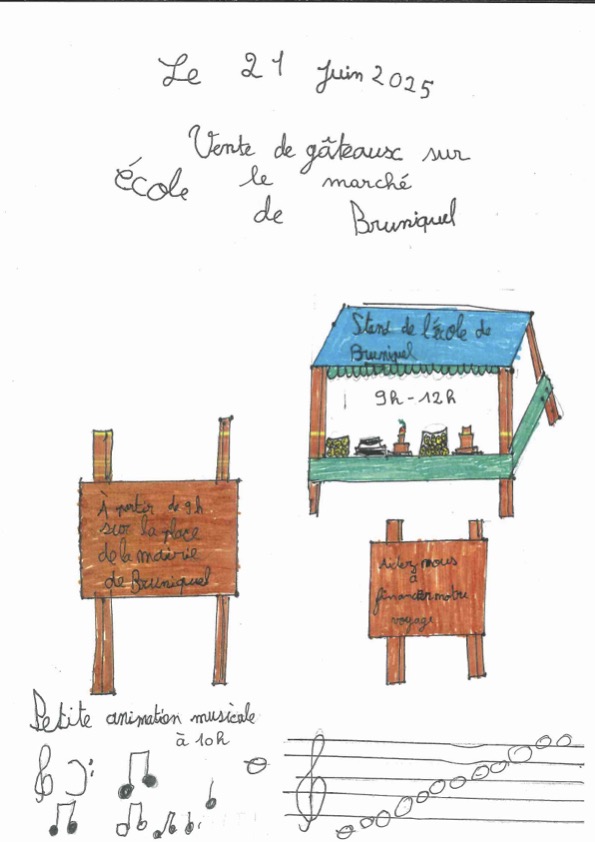 Le 21 Juin 2025
Vente de gâteaux sur
école le marché
de Bruniquel
Stand de l'école de
Bruniquel
9h - 12h
À partir de 9h
sur la place
de la mairie
de Bruniquel
Aidez nous
à
financer notre
voyage
Petite animation musicale
à 10h